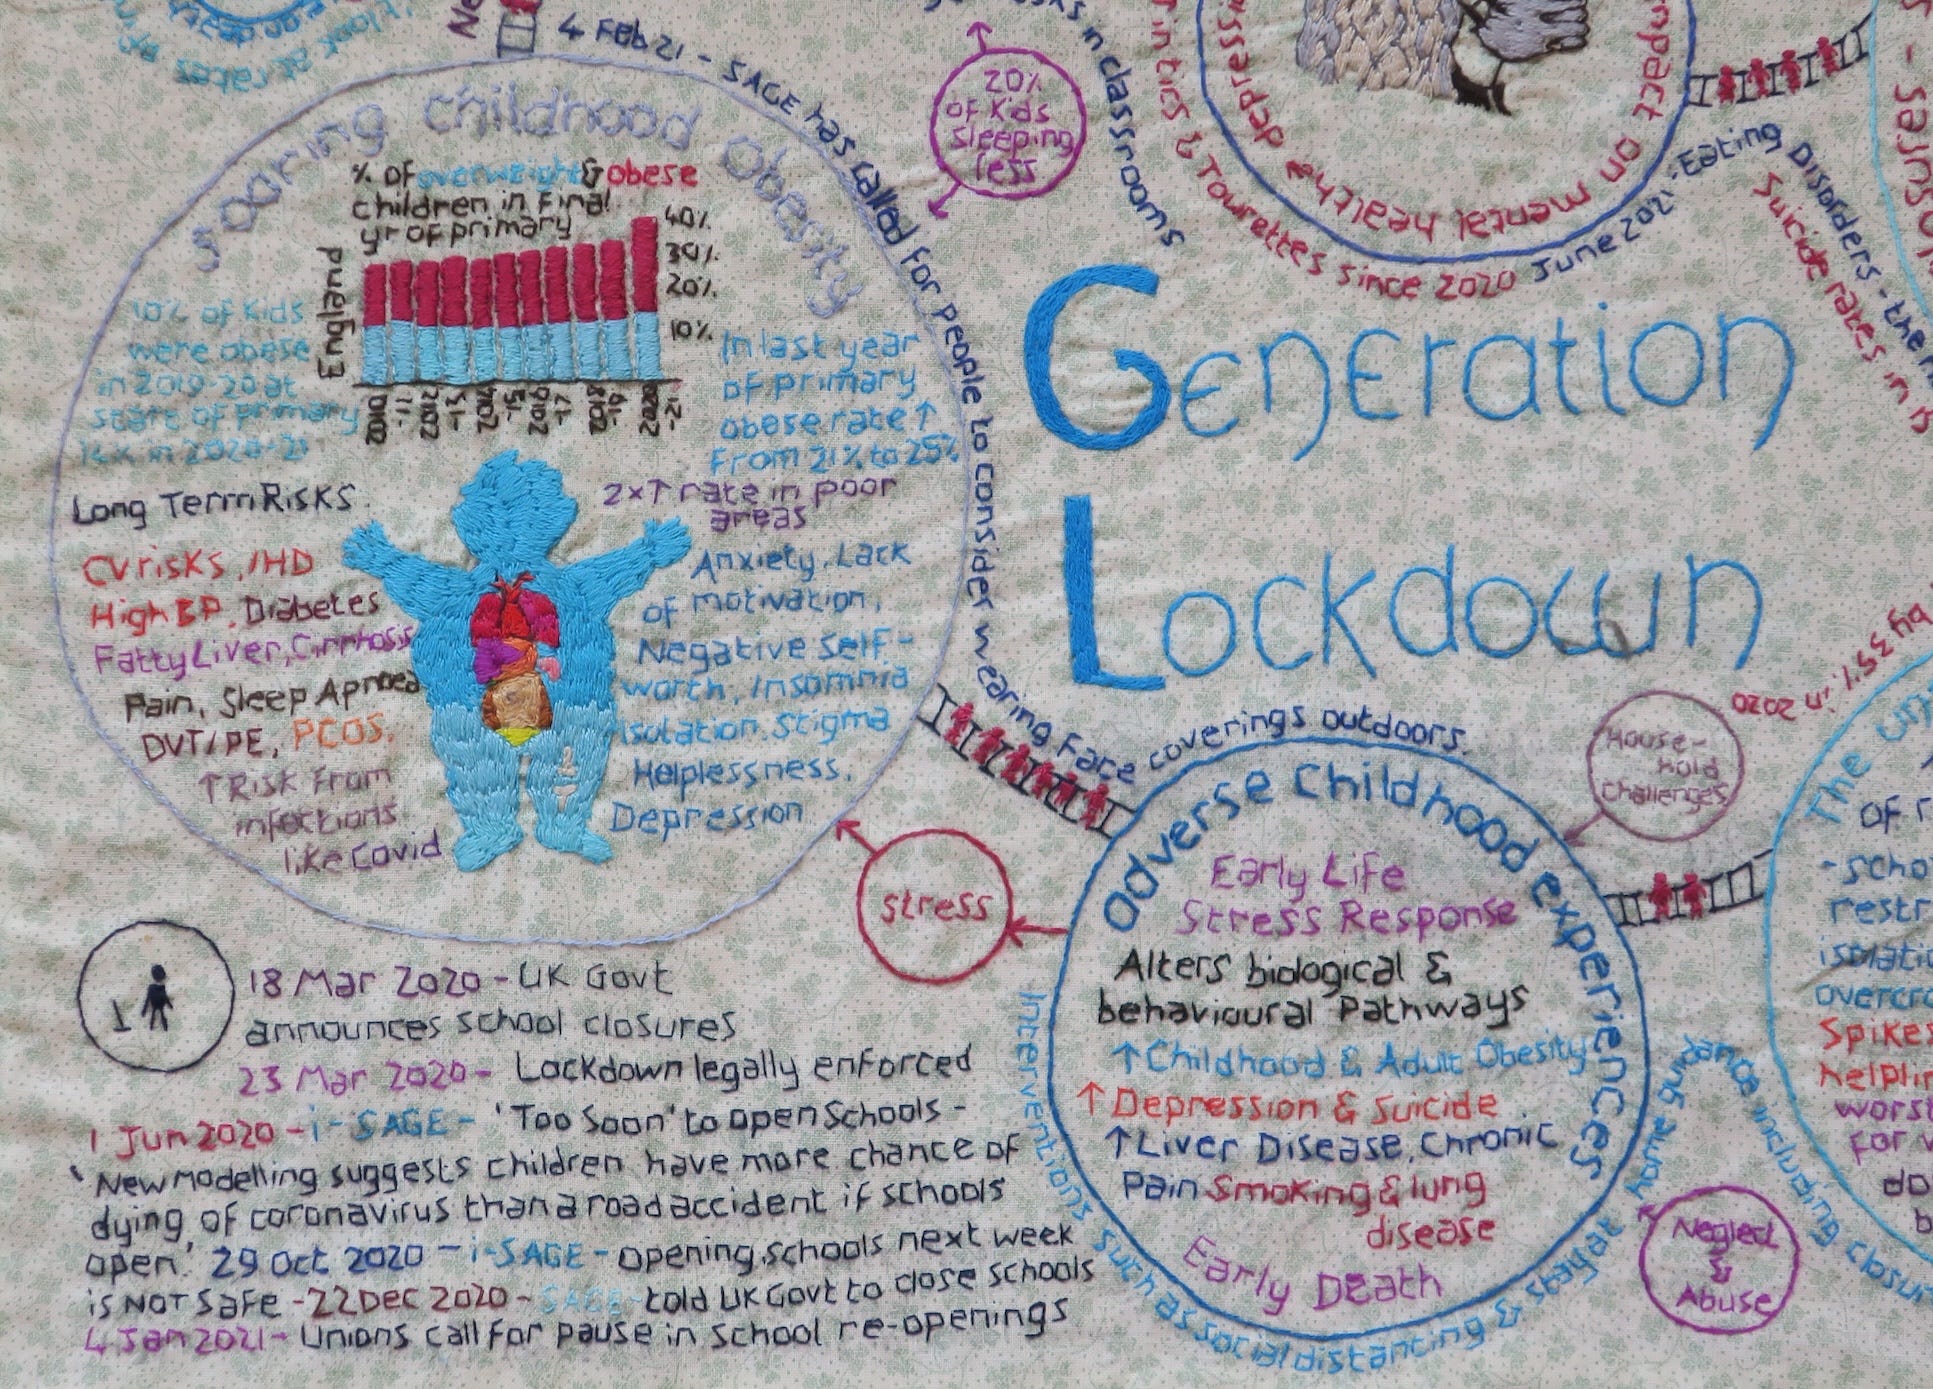 4 Feb 21 - SAGE has called for people to consider wearing face coverings outdoors.
Soaring childhood obesity
% of overweight & obese
children in final
yr of primary
England
40%
30%
20%
10%
2010
11
2012
13
2014
15
2016
17
2018
19
2020
21
10% of kids
were obese
in 2019-20 at
start of primary
in 2020-21
In last year
of primary
obese rate ↑
from 21% to 25%
2x↑ rate in poor
areas
Long Term Risks
CV risks, IHD
High BP, Diabetes
Fatty Liver, Cirrhosis
Pain, Sleep Apnoea
DVT/PE, PCOS.
↑ Risk from
infections
like Covid
Anxiety, Lack
of motivation,
Negative Self-
worth, Insomnia
isolation, Stigma
Helplessness,
Depression
20%
of Kids
sleeping
less
in classrooms
in tics & Tourettes since 2020
impact on mental health depress
June 2021 - Eating Disorders - the
Suicide rates in
by 35% in 2020
Generation
Lockdown
stress
House-
hold
Challenges
Adverse Childhood experiences
Early Life
Stress Response
Alters biological &
behavioural Pathways
↑Childhood & Adult Obesity
↑Depression & Suicide
↑Liver Disease, Chronic
Pain Smoking & lung
disease
Early Death
Interventions such as social distancing &
including
Neglect
&
Abuse
The
of
-scho
restr
isolatio
overcro
Spikes
helplin
worst
for
do
18 Mar 2020 - UK Govt
announces school closures
23 Mar 2020 - Lockdown legally enforced
1 Jun 2020 - i-SAGE - 'Too Soon' to open Schools -
'New modelling suggests children have more chance of
dying of coronavirus than a road accident if schools
open.' 29 Oct 2020 - i-SAGE - opening schools next week
is NOT Safe - 22 Dec 2020 - SAGE - told UK Govt to close schools
4 Jan 2021 - Unions call for pause in school re-openings